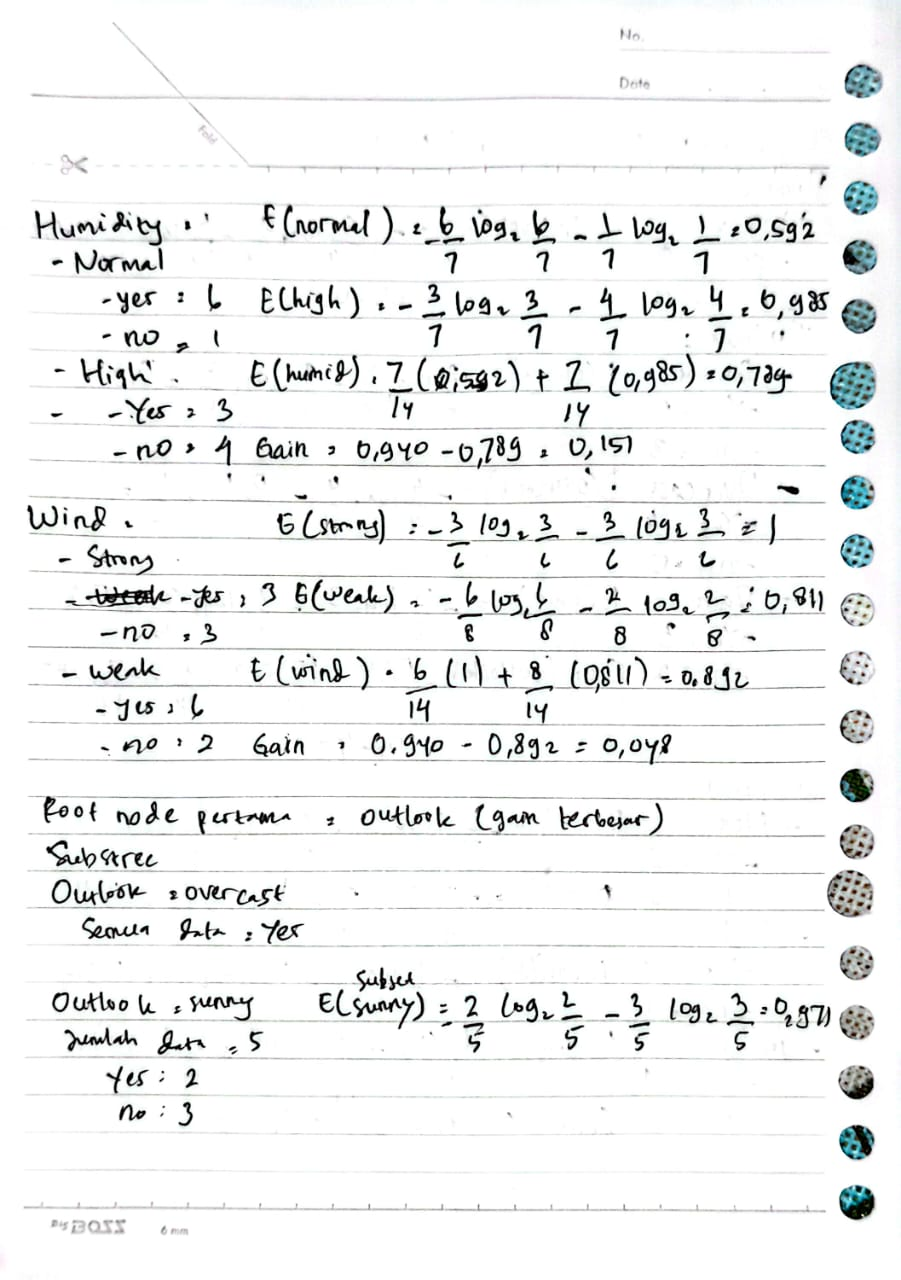 No.
Date
Fold
Humidity : E(normal) = -6/7 log₂ 6/7 - 1/7 log₂ 1/7 = 0,592
- Normal
- yes : 6 E(high) = - 3/7 log₂ 3/7 - 4/7 log₂ 4/7 = 0,985
- no = 1
- High E(humid) = 7/14 (0,592) + 7/14 (0,985) = 0,789
- - Yes = 3
- no = 4 Gain = 0,940 - 0,789 = 0,151
Wind . E(strong) = - 3/6 log₂ 3/6 - 3/6 log₂ 3/6 = 1
- Strong
- Yes : 3 E(weak) = - 6/8 log₂ 6/8 - 2/8 log₂ 2/8 = 0,811
- no : 3
- weak E(wind) = 6/14 (1) + 8/14 (0,811) = 0.892
- yes : 6
- no : 2 Gain = 0.940 - 0,892 = 0,048
Root node pertama = outlook (gain terbesar)
Substree
Outlook = overcast
Semua data = Yes
Subset
Outlook = sunny E(sunny) = -2/5 log₂ 2/5 - 3/5 log₂ 3/5 = 0,971
Jumlah data = 5
Yes : 2
no : 3
BIG BOSS 6 mm